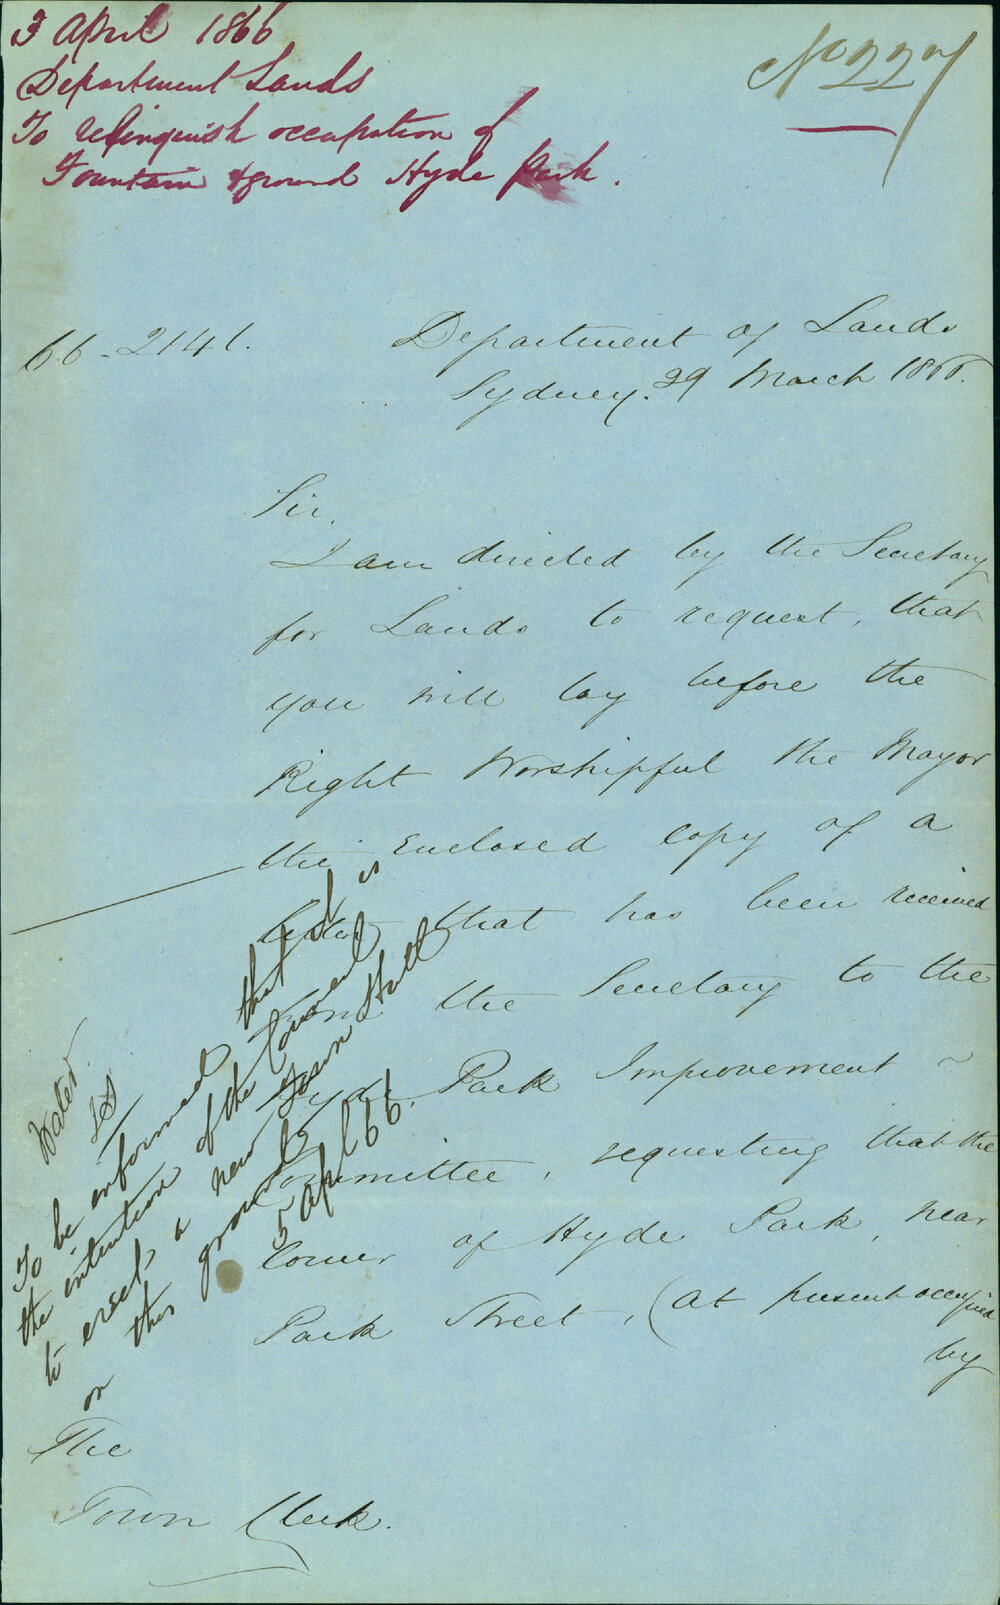 3 April 1866
Department Lands
To relinquish occupation of
Fountain & ground Hyde Park.
No 227
66-2141.
Department of Lands
Sydney. 29 March 1866.
Sir,
I am directed by the Secretary
for Lands to request, that
you will lay before the
Right Worshipful the Mayor
the enclosed copy of a
letter that has been received
from the Secretary to the
Hyde Park Improvement
Committee, requesting that the
corner of Hyde Park, near
Park Street, (at present occupied
by
Water
To be informed that it is
the intention of the Council
to erect a new Town Hall
on this ground
5 Apl 66.
The
Town Clerk.